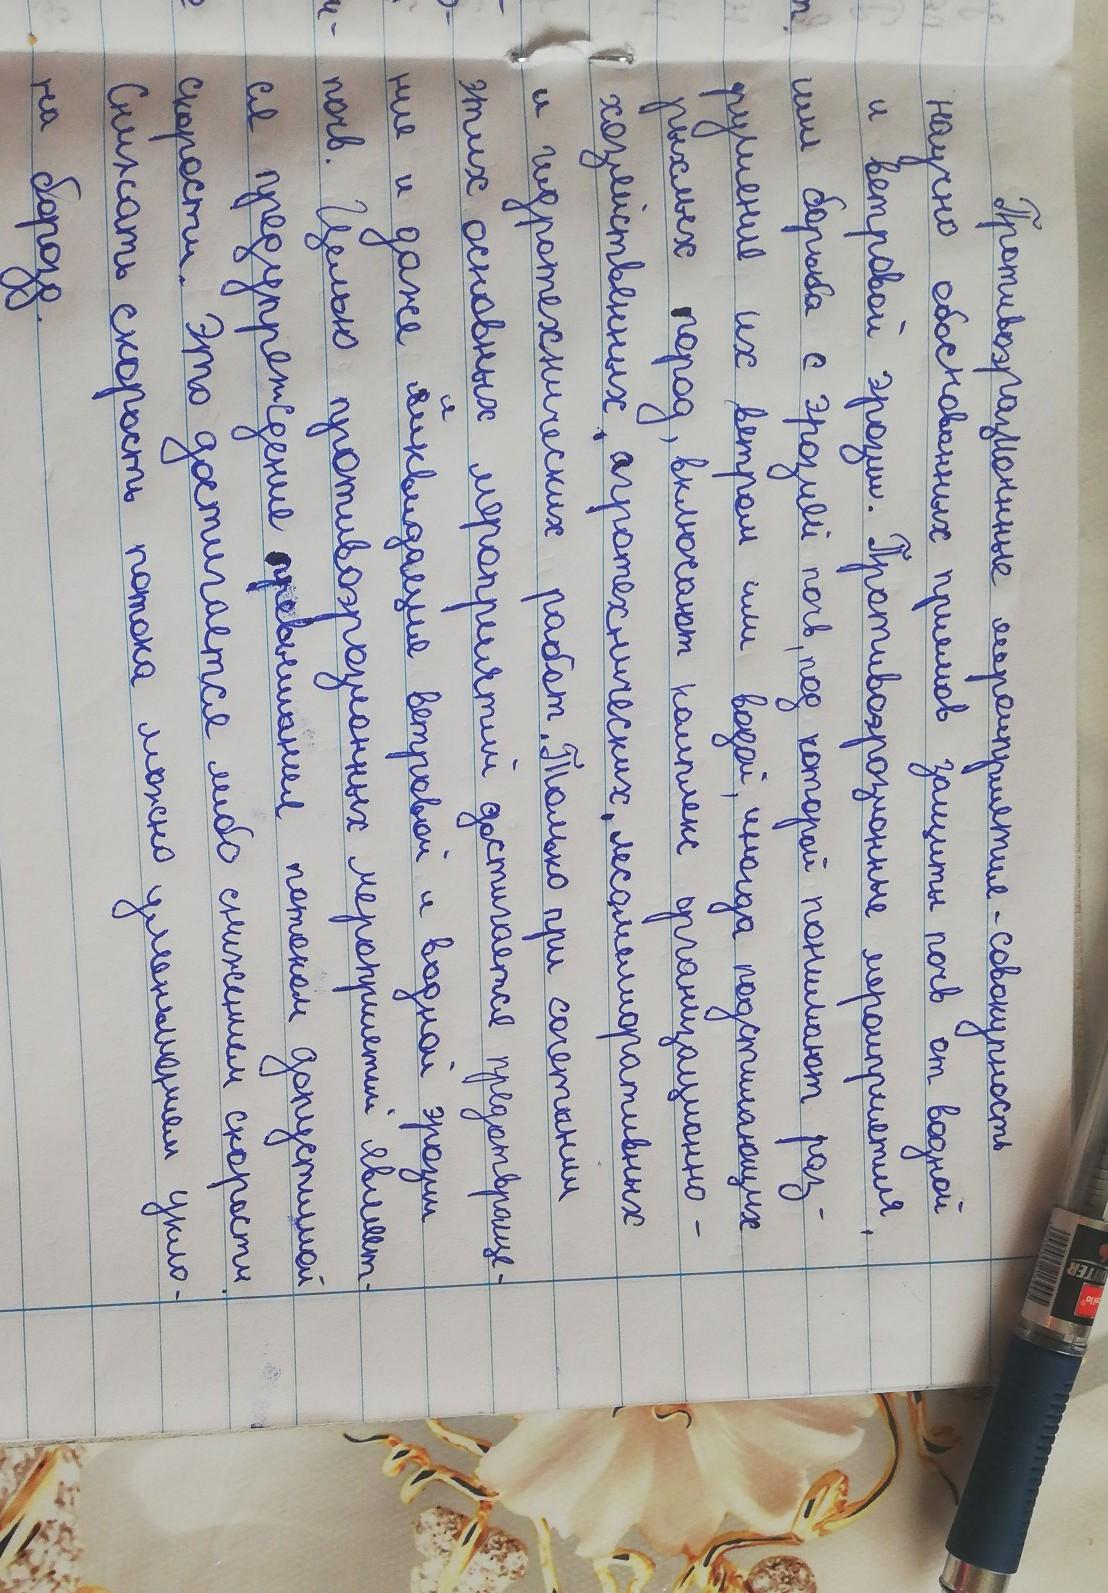 Противоэрозионные мероприятие - совокупность
научно обоснованных приемов защиты почв от водной
и ветровой эрозии. Противоэрозионные мероприятия,
или борьба с эрозией почв, под которой понимают раз-
рушение их ветром или водой, иногда подстилающих
рыхлых пород, включают комплекс организационно-
хозяйственных, агротехнических, лесомелиоративных
и гидротехнических работ. Только при сочетании
этих основных мероприятий достигается предотвраще-
ние и даже ликвидация ветровой и водной эрозии
почв. Целью противоэрозионных мероприятий являет-
ся предупреждение превышения потоком допустимой
скорости. Это достигается либо снижением скорости.
Снижать скорость потока можно уменьшением укло-
на борозд.